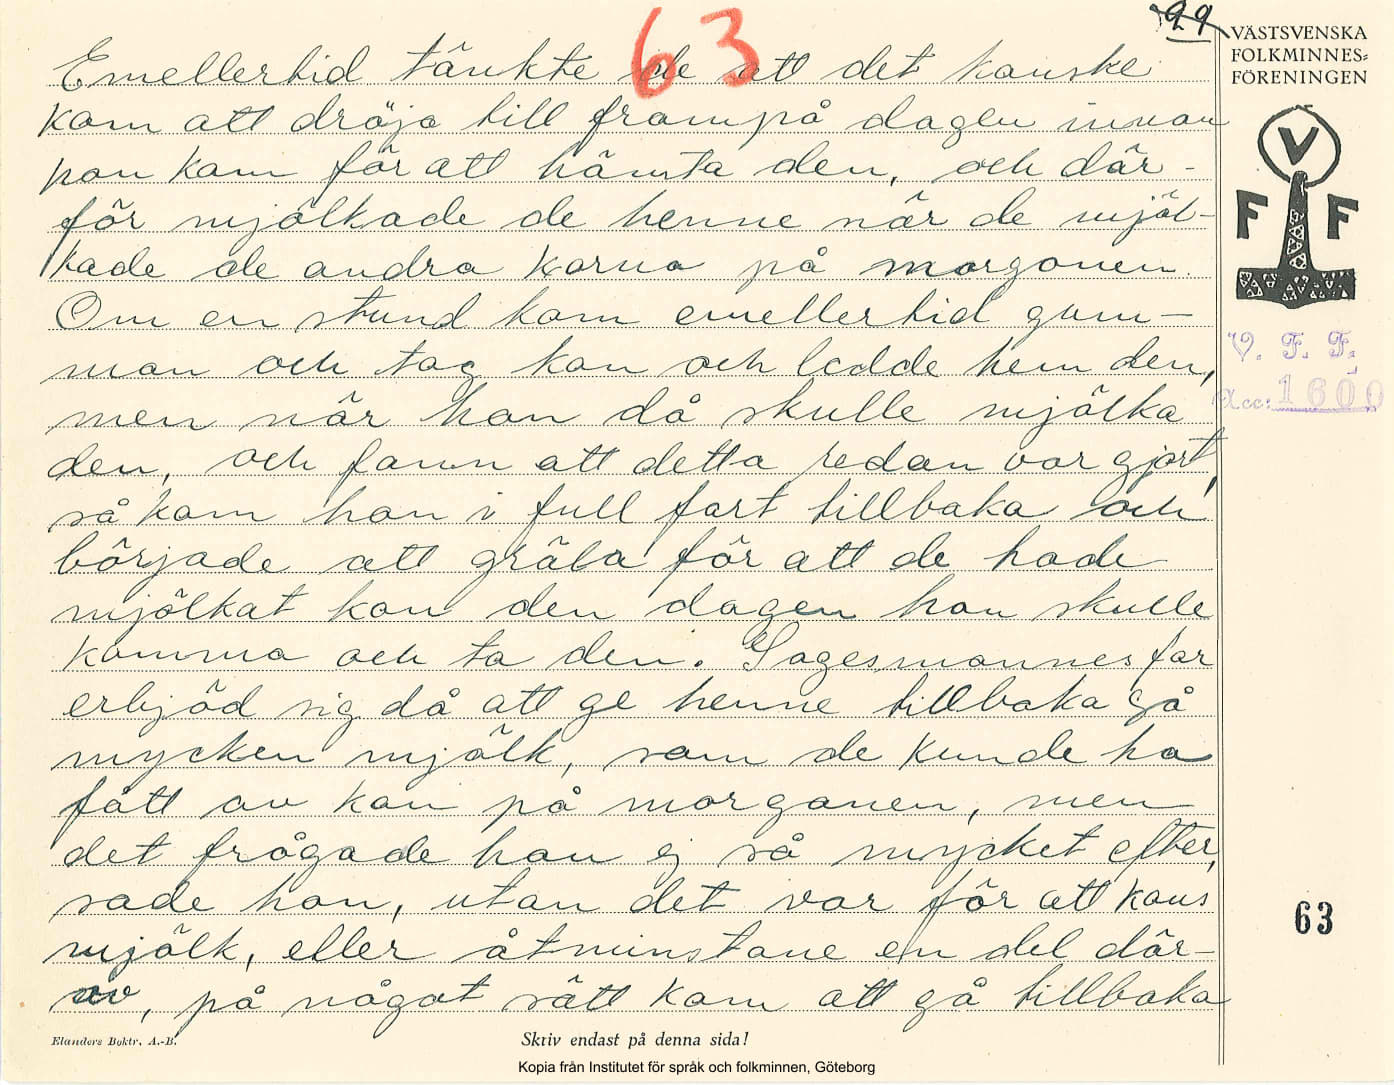 63
29
VÄSTSVENSKA
FOLKMINNES=
FÖRENINGEN
V
F F
V. F. F.
Acc: 1600
Emellertid tänkte de att det kanske
kom att dröja till frampå dagen innan
hon kom för att hämta den, och där-
för mjölkade de henne när de mjöl-
kade de andra korna på morgonen.
Om en stund kom emellertid gum-
man och tog kon och ledde hem den,
men när hon då skulle mjölka
den, och fann att detta redan var gjort,
så kom hon i full fart tillbaka och
började att gräla för att de hade
mjölkat kon den dagen hon skulle
komma och ta den. Sagesmannes far
erbjöd sig då att ge henne tillbaka så
mycken mjölk, som de kunde ha
fått av kon på morgonen, men
det frågade hon ej så mycket efter,
sade hon, utan det var för att kons
mjölk, eller åtminstone en del där-
av, på något sätt kom att gå tillbaka
63
Elanders Boktr. A.-B.
Skriv endast på denna sida!
Kopia från Institutet för språk och folkminnen, Göteborg